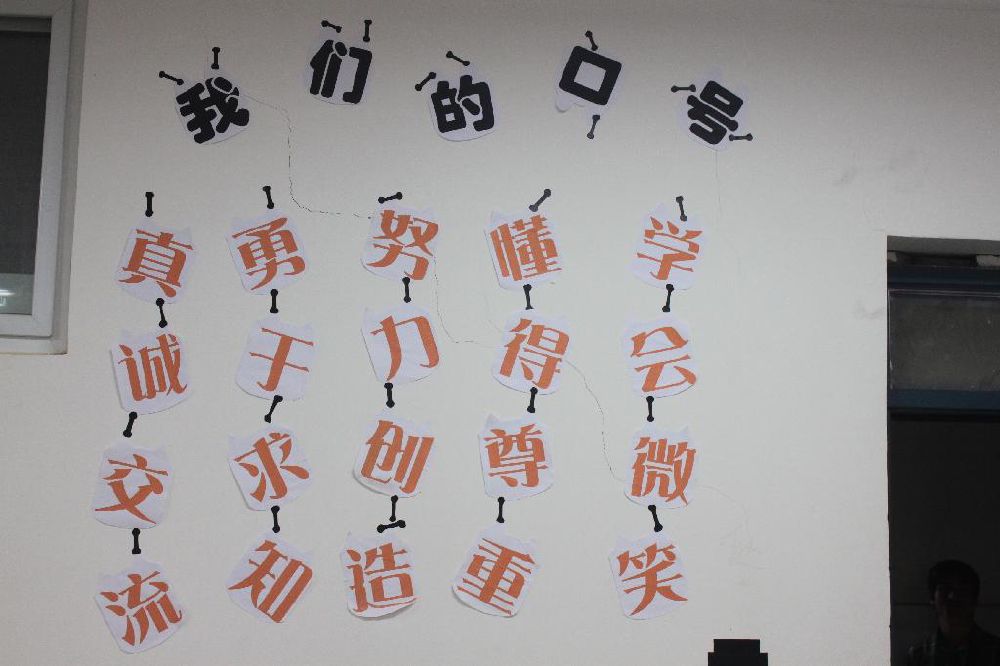 我们的口号
真诚交流
勇于求知
努力创造
懂得尊重
学会微笑